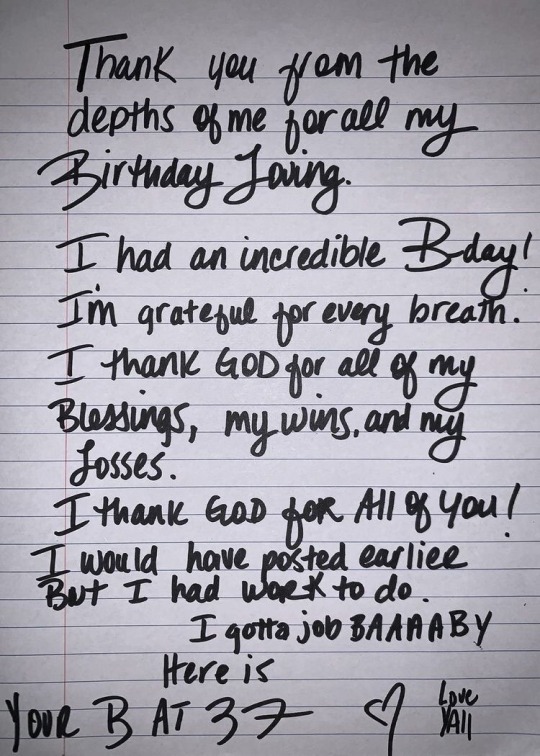 Thank you from the
depths of me for all my
Birthday Loving.
I had an incredible B-day!
I'm grateful for every breath.
I thank GOD for all of my
Blessings, my wins, and my
Losses.
I thank GOD for All of You!
I would have posted earlier
But I had work to do.
I gotta job BAAAABY
Here is
YOUR B AT 37
Love
YAll